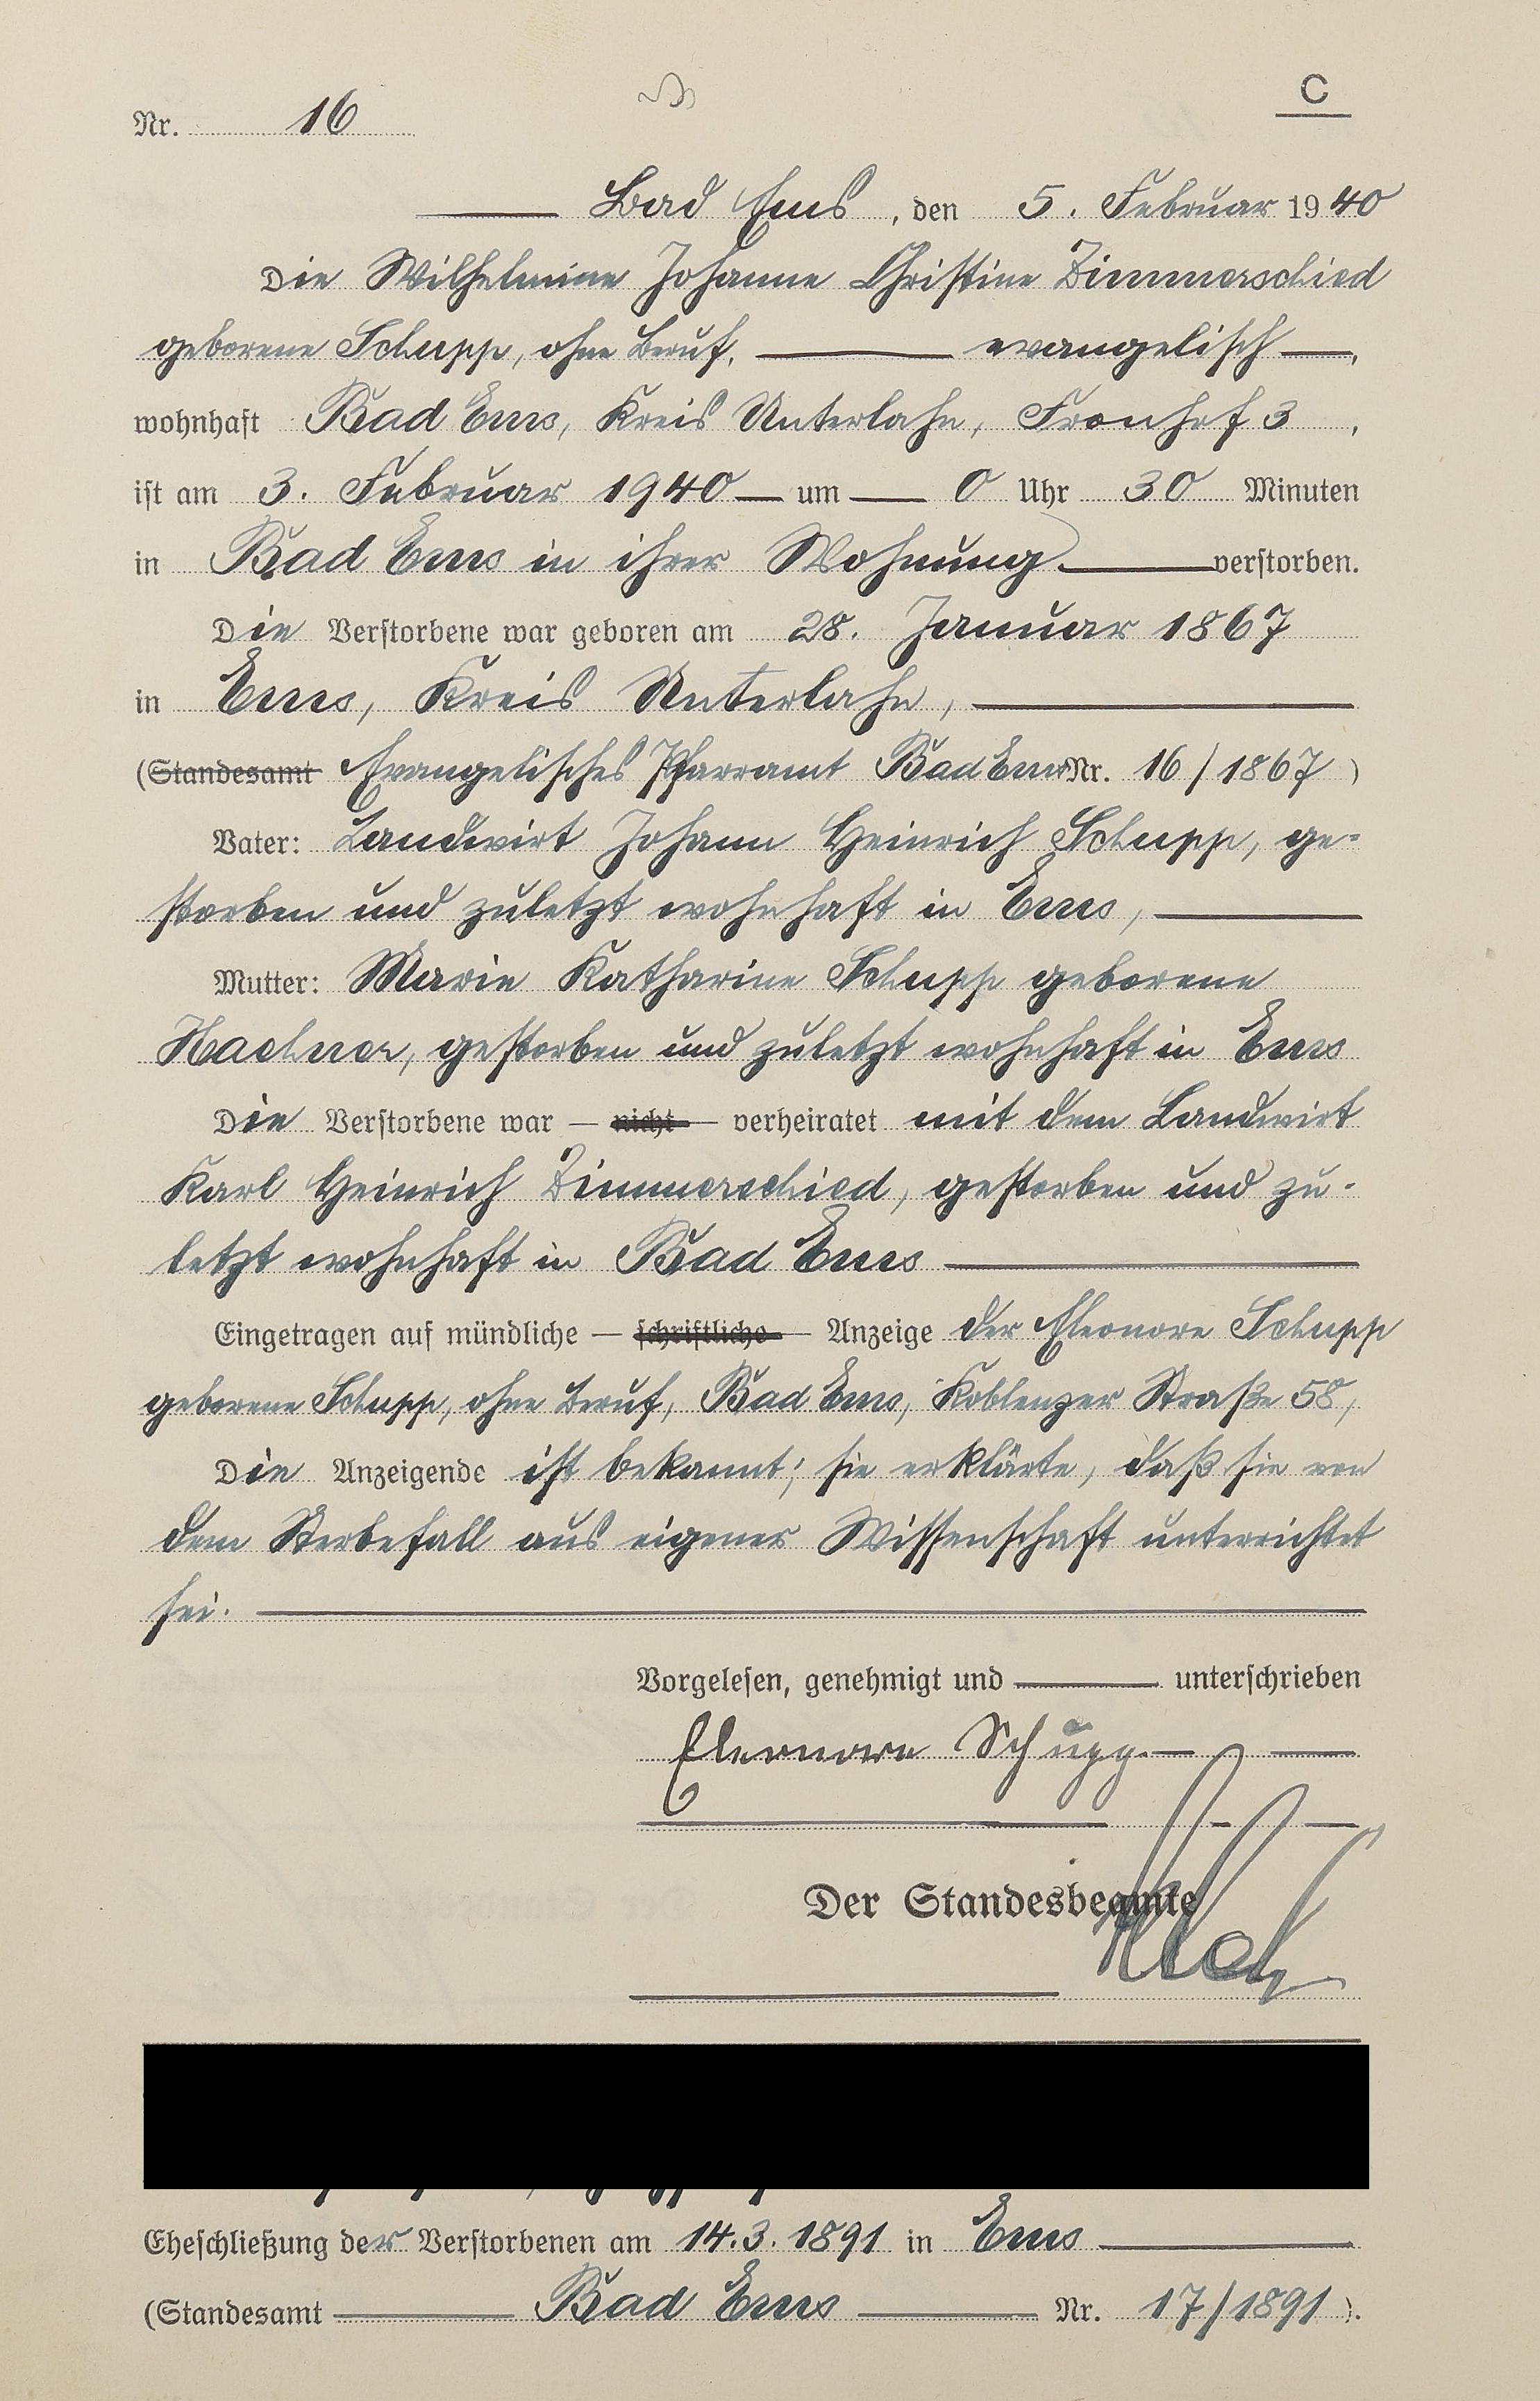 C
Nr. 16
Bad Ems, den 5. Februar 1940
Die Wilhelmine Johanne Christine Zimmerschied
geborene Schupp, ohne Beruf, evangelisch,
wohnhaft Bad Ems, Kreis Unterlahn, Fronhof 3,
ist am 3. Februar 1940 um 0 Uhr 30 Minuten
in Bad Ems in ihrer Wohnung verstorben.
Die Verstorbene war geboren am 28. Januar 1867
in Ems, Kreis Unterlahn,
(Standesamt Evangelisches Pfarramt Bad Ems Nr. 16/1867)
Vater: Landwirt Johann Heinrich Schupp, ge=
storben und zuletzt wohnhaft in Ems,
Mutter: Marie Katharine Schupp geborene
gestorben und zuletzt wohnhaft in Ems
Die Verstorbene war — nicht — verheiratet mit dem Landwirt
Karl Heinrich Zimmerschied, gestorben und zu-
letzt wohnhaft in Bad Ems
Eingetragen auf mündliche — schriftliche — Anzeige der Eleonore Schupp
geborene Schupp, ohne Beruf, Bad Ems, Koblenzer Straße 58,
Die Anzeigende ist bekannt; sie erklärte, daß sie von
dem Sterbefall aus eigener Wissenschaft unterrichtet
sei.
Vorgelesen, genehmigt und unterschrieben
Eleonore Schupp
Der Standesbeamte
Eheschließung der Verstorbenen am 14.3.1891 in Ems
(Standesamt Bad Ems Nr. 17/1891).